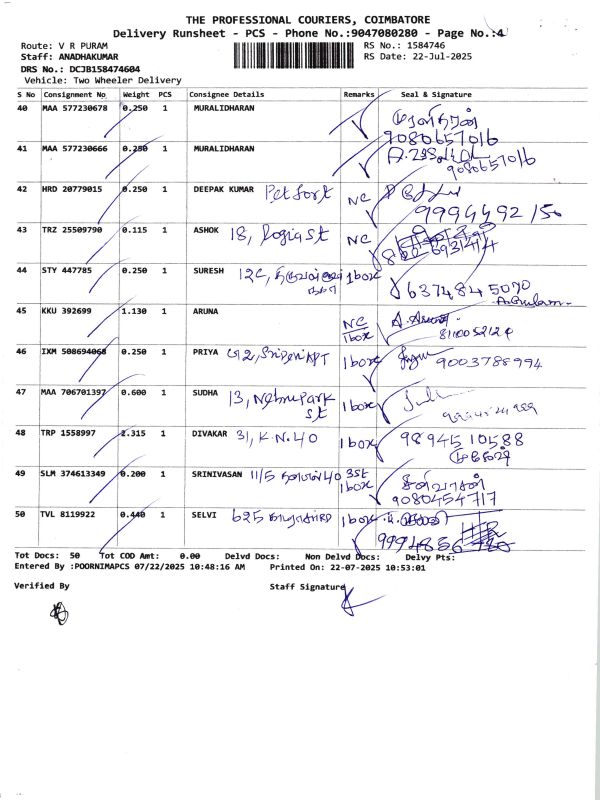 THE PROFESSIONAL COURIERS, COIMBATORE
Delivery Runsheet - PCS - Phone No.:9047080280 - Page No.:4
Route: V R PURAM
RS No.: 1584746
Staff: ANADHAKUMAR
RS Date: 22-Jul-2025
DRS No.: DCJB158474604
Vehicle: Two Wheeler Delivery
S No Consignment No Weight PCS Consignee Details Remarks Seal & Signature
40 MAA 577230678 0.250 1 MURALIDHARAN முரளிதரன்
9080657016
41 MAA 577230666 0.280 1 MURALIDHARAN
9080657016
42 HRD 20779015 0.250 1 DEEPAK KUMAR NC
43 TRZ 25509790 0.115 1 ASHOK 18, NC
44 STY 447785 0.250 1 SURESH 12C, 1box
6374845070
45 KKU 392699 1.130 1 ARUNA NC
1box
46 IXM 508694068 0.250 1 PRIYA G2, Sri Devi APT 1box 9003788994
47 MAA 706701397 0.600 1 SUDHA 13, Nehru park 1box
st
48 TRP 1558997 2.315 1 DIVAKAR 31, K.N.40 1box 9894510588
49 SLM 374613349 0.200 1 SRINIVASAN 11/5 1box
9080454717
50 TVL 8119922 0.440 1 SELVI 625 1box
Tot Docs: 50 Tot COD Amt: 0.00 Delvd Docs: Non Delvd Docs: Delvy Pts:
Entered By :POORNIMAPCS 07/22/2025 10:48:16 AM Printed On: 22-07-2025 10:53:01
Verified By Staff Signature